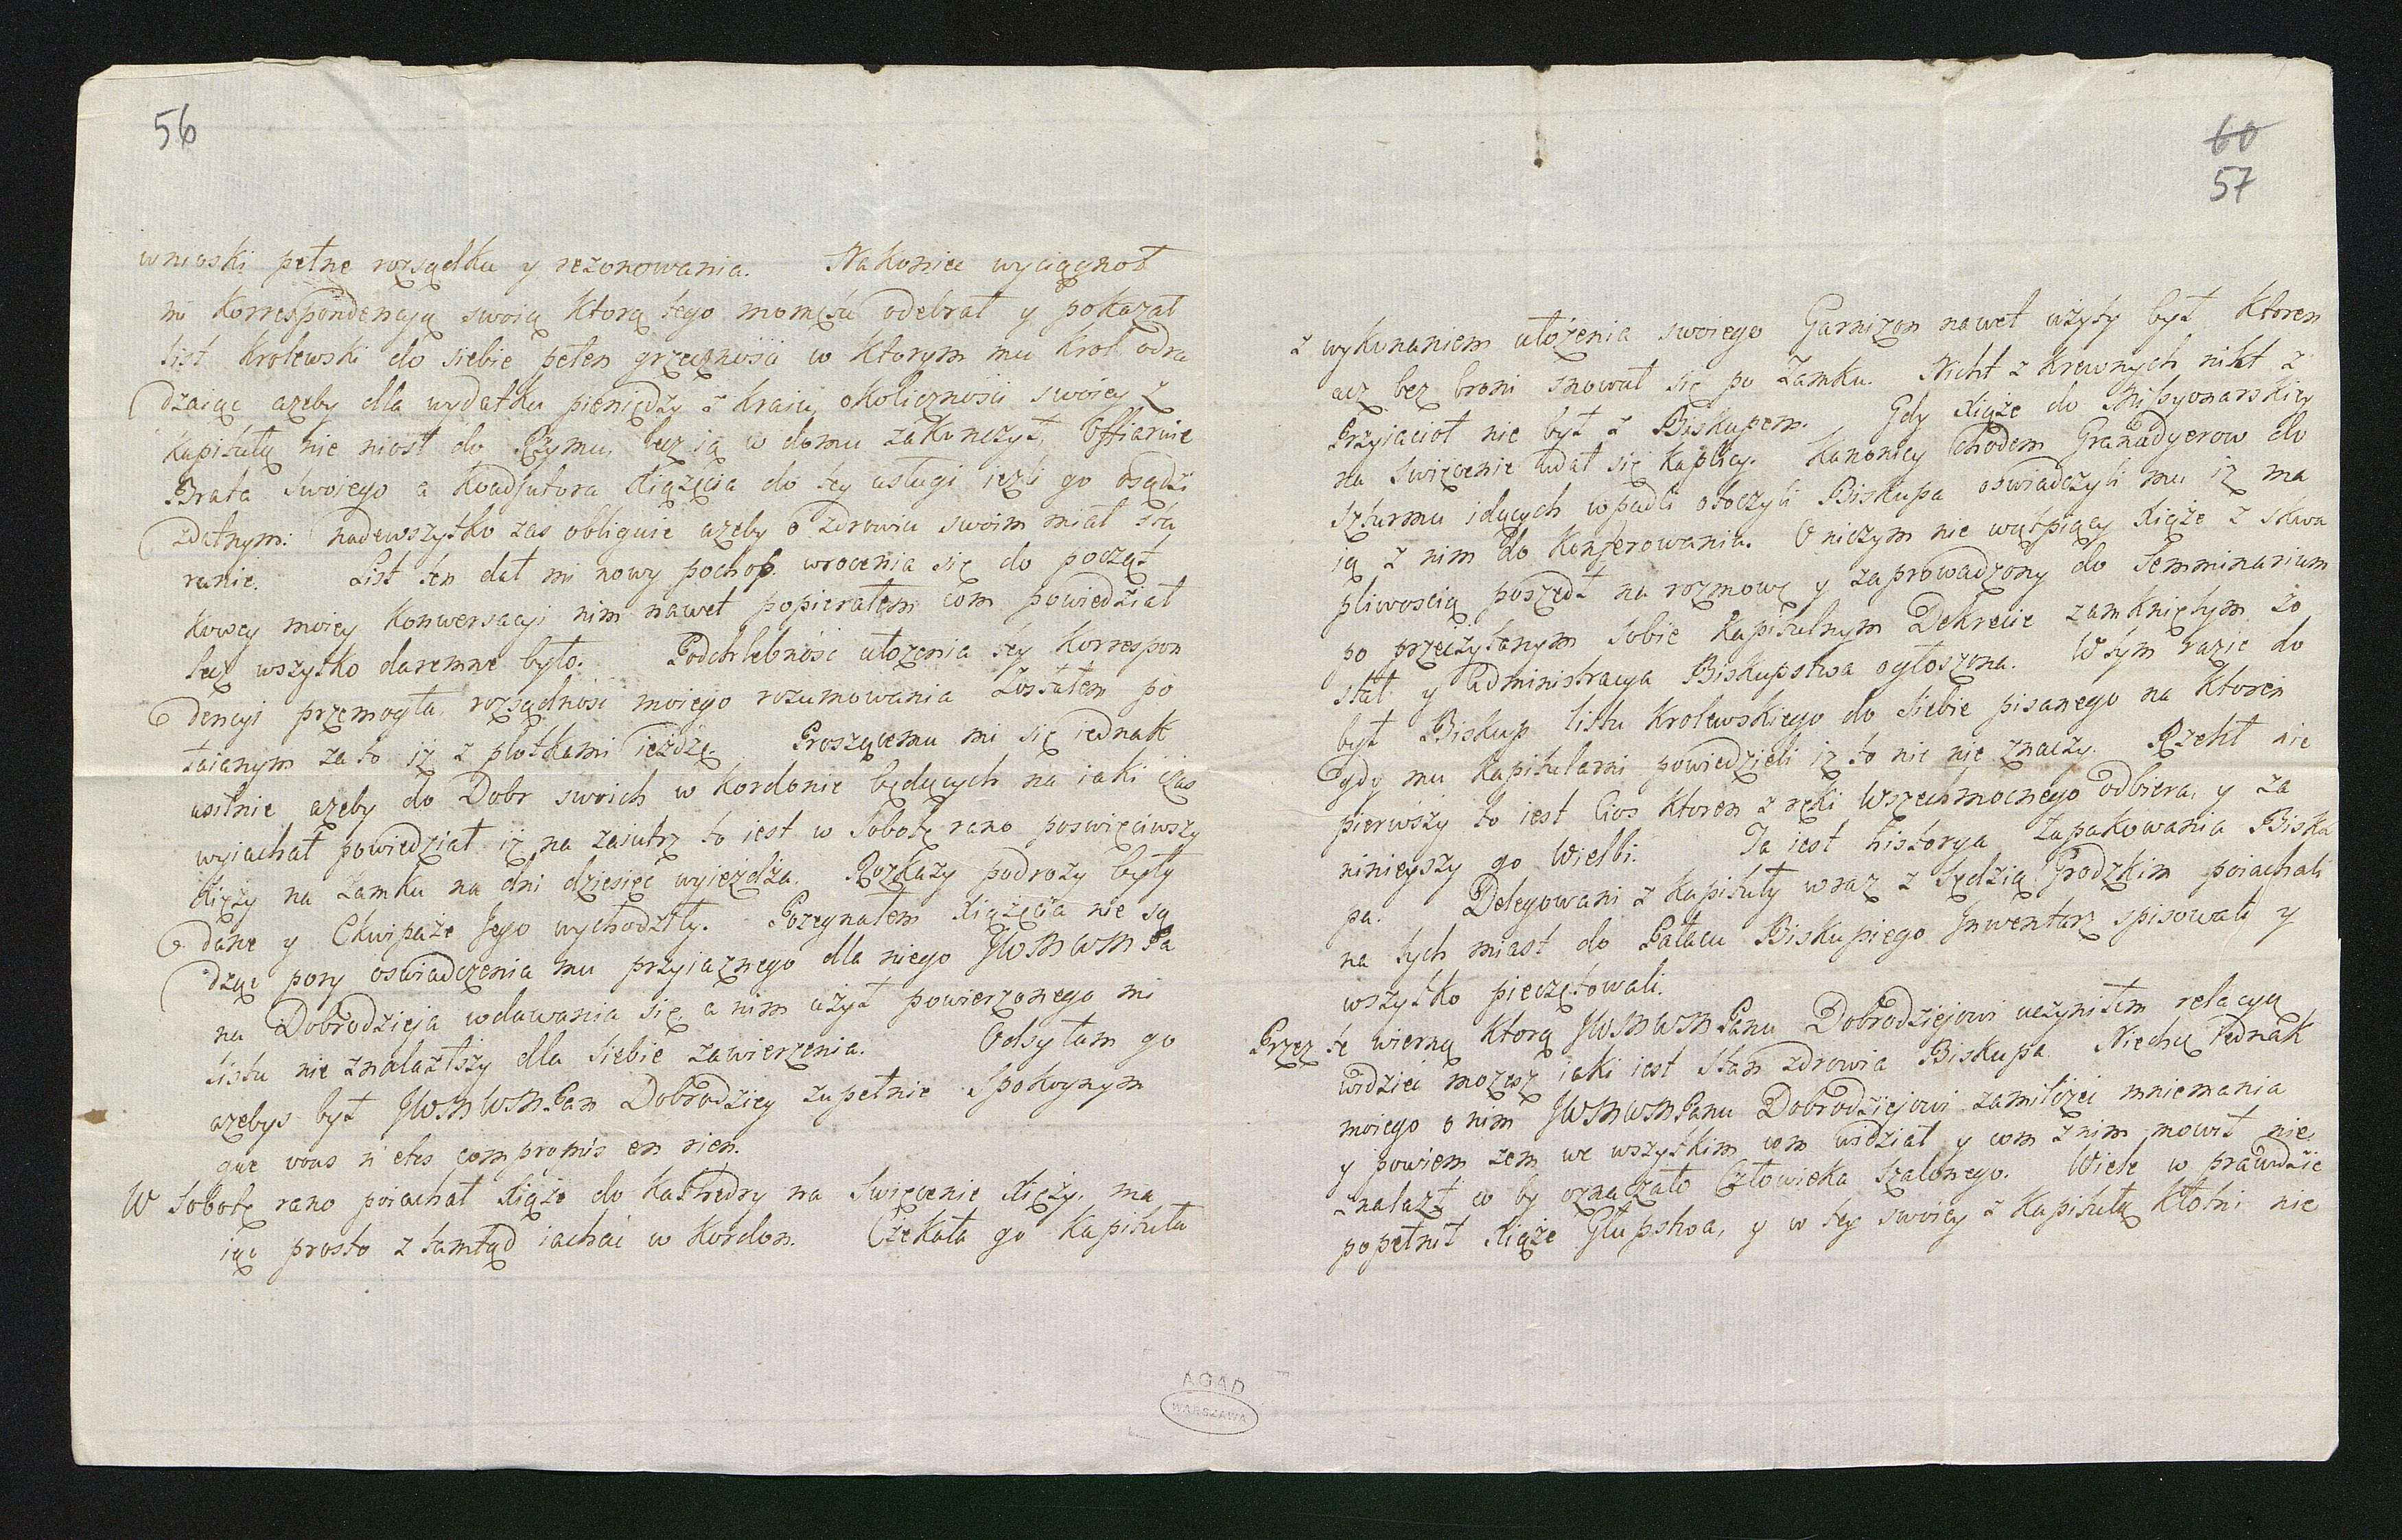 56
wnioski pełne rozsądku y rezonowania. Nakoniec wyciągnoł
mi Korrespondencyą swoią ktorą tego momętu odebrał y pokazał
list Krolewski do siebie pełen grzecznosci w ktorym mu Krol odra
dzaiąc azeby dla wydatku pieniędzy z kraiu okolicznosci swoiey z
Kapitułą nie niosł do Rzymu, lecz ią w domu zakonczył, Offiaruie
Brata swoiego a Koadjutora Xiązęcia do tey usługi iezli go osądzi
zdatnym: nadewszytko zas obliguie azeby o zdrowiu swoim miał sta
ranie. List ten dał mi nowy pochop wrocenia się do począt
kowey moiey konwersacyi nim nawet popierałem com powiedział
lecz wszytko daremne było. Podchlebnosc ułozenia tey Korrespon
dencyi przemogła rozsądnosc moiego rozumowania Zostałem po
łaianym za to iz z plotkami iezdzę. Proszącemu mi się iednak
usilnie azeby do Dobr swoich w Kordonie będących na iaki czas
wyiachał powiedział iz na zaiutrz to iest w Sobotę rano poswięciwszy
Xięży na Zamku na dni dziesięc wyiezdża. Rozkazy podrozy były
dane y Ekwipaże Jego wychodziły. Pozegnałem Xiążęcia nie są
dząc pory oswiadczenia mu przyiaznego dla niego JWMWM Pa
na Dobrodzieja wdawania się a nim użył powierzonego mi
listu nie znalazłszy dla siebie zawierzenia. Odsyłam go
azebys był JWMWMPan Dobrodziey zupełnie Spokoynym
que vous n'etes compromis en rien.
W Sobotę rano poiachał Xiąże do Kathedry na Swięcenie Xięży, ma
iąc prosto z tamtąd iachać w Kordon. Czekała go Kapituła
60
57
z wykonaniem ułożenia swoiego Garnizon nawet użyty był ktoren
acz bez broni snował się po Zamku. Nicht z Krewnych nikt z
Przyiacioł nie był z Biskupem. Gdy Xiąże do Missyonarskiey
na Swięcenie udał się Kaplicy. Kanonicy chodem Granadyerow do
szturmu idących wpadli otoczyli Biskupa oswiadczyli mu iz ma
ią z nim do Konferowania. O niczym nie wątpiący Xiąże z skwa
pliwoscią poszedł na rozmowę y zaprowadzony do Semminarium
po przeczytanym sobie Kapitulnym Dekrecie zamkniętym zo
stał y administracya Biskupstwa ogłoszona. W tym razie do
był Biskup listu Krolewskiego do siebie pisanego na ktoren
gdy mu Kapitularni powiedzieli iz to nic nie znaczy. Rzekł iże
pierwszy to iest Cios ktoren z ręki Wszechmocnego odbiera, y za
ninieyszy go Wielbi. Ta iest historya Zapakowania Bisku
pa. Delegowani z Kapituły wraz z Sędzią Grodzkim poiachali
na tych miast do Pałacu Biskupiego Jnwentarz spisowali y
wszystko pieczętowali.
Przez te wierną ktorą JWMWMPanu Dobrodziejowi uczyniłem relacyą
widziec mozesz iaki iest stan zdrowia Biskupa. Niechcę Jednak
moiego o nim JWMWMPanu Dobrodziejowi zamilczeć mniemania
y powiem zem we wszystkim com widział y com z nim mowił nie
znalazł co by oznaczało Człowieka szalonego. Wiele w prawdzie
popełnił Xiąże Głupstwa, y w tey swoiey z Kapitułą kłotni nie
AGAD
WARSZAWA